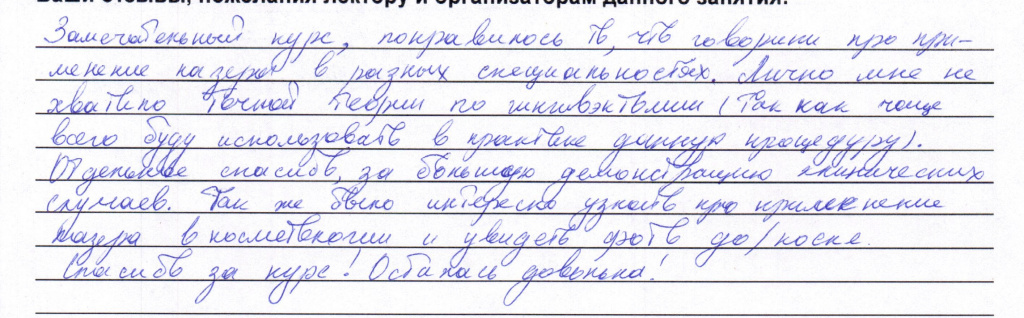 Ваши отзывы, пожелания лектору и организаторам данного занятия:
Замечательный курс, понравилось то, что говорили про при-
менение лазера в разных специальностях. Лично мне не
хватило точной теории по гингивэктомии (Так как чаще
всего буду использовать в практике данную процедуру).
Отдельное спасибо, за большую демонстрацию клинических
случаев. Так же было интересно узнать про применение
лазера в косметологии и увидеть фото до/после.
Спасибо за курс! Осталась довольна!